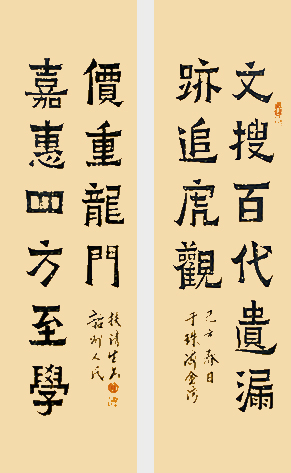 文搜百代遺漏
跡追虎觀
己亥春日
于珠海金湾
嘉惠四方至學
價重龍門
韶州人氏